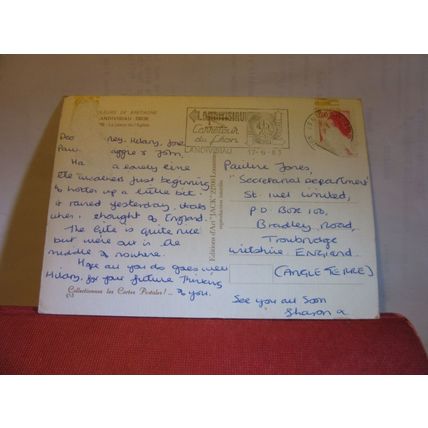 COULEURS DE BRETAGNE
LANDIVISIAU
LANDIVISIAU
Carrefour
du Léon
LANDIVISIAU
17-6-83
Editions d'Art "JACK"
Hilary, Jose,
& John,
Ha a lovely time
the weather's just beginning
to hotten up a little but
it rained yesterday,
when I thought of England.
The Gite is quite nice
but we're out in the
middle of nowhere.
Hope all you do goes well
Hilary, for your future Thinking
of you.
Collectionnez les Cartes Postales!
Pauline Jones,
"Secretarial Department"
St. Ivel United,
P O BOX 100,
Bradley Road,
Trowbridge
Wiltshire ENGLAND.
(ANGLETERRE)
See you all soon
Sharon x